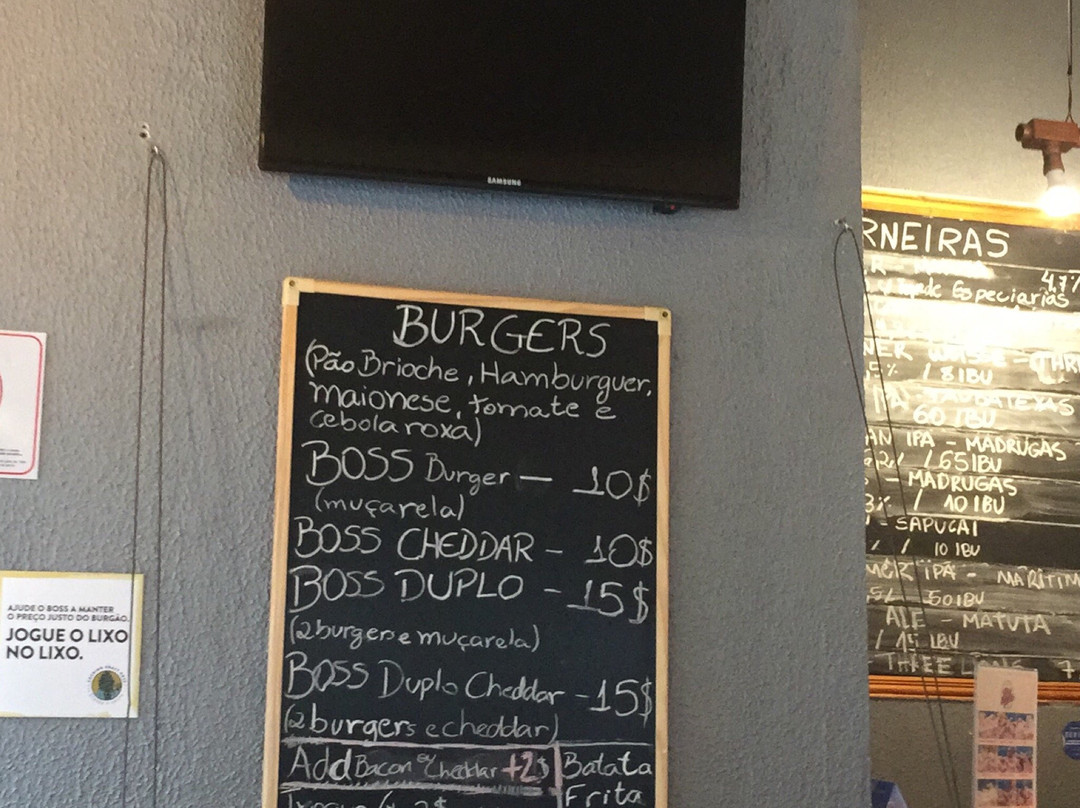 SAMSUNG
BURGERS
(Pão Brioche, Hamburguer,
maionese, tomate e
cebola roxa)
BOSS Burger — 10$
(muçarela)
BOSS CHEDDAR - 10$
BOSS DUPLO - 15$
(2 burger e muçarela)
BOSS Duplo Cheddar - 15$
(2 burgers e cheddar)
Add Bacon ou Cheddar +2$
Batata
Frita
AJUDE O BOSS A MANTER
O PREÇO JUSTO DO BURGÃO.
JOGUE O LIXO
NO LIXO.
RNEIRAS
4,7%
Especiarias
/ 8 IBU
60 IBU
AN IPA - MADRUGAS
/ 65 IBU
- MADRUGAS
3% / 10 IBU
- SAPUCAI
/ 10 IBU
IPA - MARITIM
50 IBU
ALE - MATUTA
/ 15 IBU
THREE